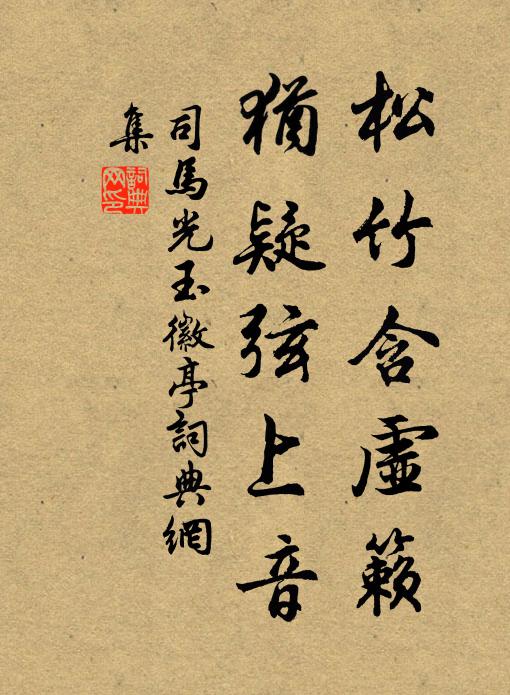 松竹含虛籟
猶疑弦上音
司馬光玉徽亭詞典網
集
詞典
网印